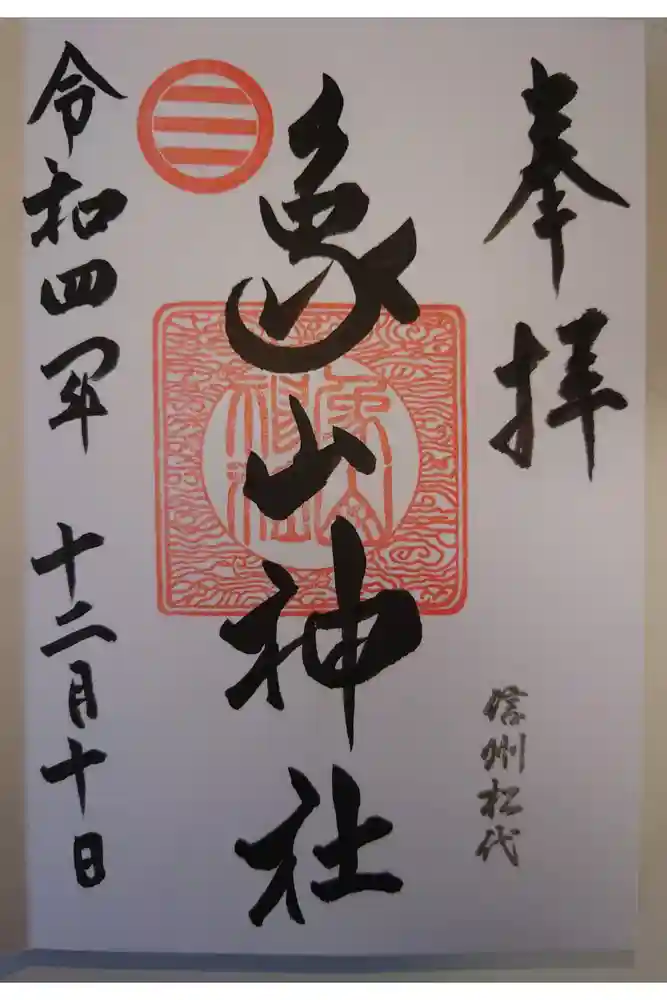 奉拝
信州松代
象山神社
象山
神社
令和四年 十二月十日